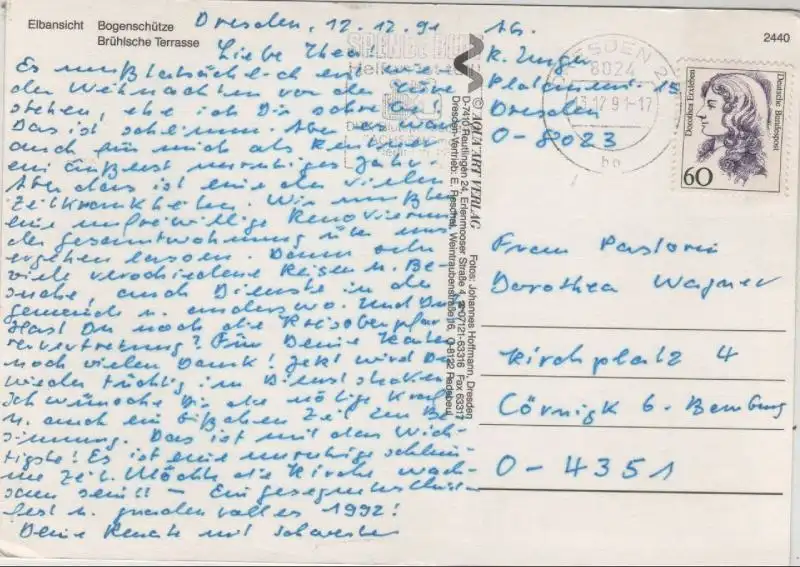 Elbansicht Bogenschütze
Brühlsche Terrasse
2440
Dresden, 12.12.91
Liebe Thea!
Es muß tatsächlich erst wieder
den Weihnachten vor der Türe
stehen, ehe ich Dir schreibe!
Das ist schlimm. Aber es war
auch für mich als Rentner
ein äußerst unruhiges Jahr.
Aber das ist eine der vielen
Zeitkrankheiten. Wir mußten
eine unfreiwillige Renovierung
der Gesamtwohnung über uns
ergehen lassen. Dann sehr
viele verschiedene Reisen u. Be-
suche, auch Dienste in der
Gemeinde u. anderswo. Und Du?
Hast Du noch die Kreisoberpfar-
rervertretung? Für Deine Karten
noch vielen Dank! Jetzt wird Du
wieder tüchtig im Dienst stecken.
Ich wünsche Dir die nötige Kraft
u. auch ein bißchen Zeit zur Be-
sinnung. Das ist mit das Wich-
tigste! Es ist eine unruhige schlim-
me Zeit. Möchte die Kirche wach-
sam sein!! – Ein gesegnetes
fest u. gnadenvolles 1992!
Deine Renate mit Schwester
© AQUA ART VERLAG Fotos: Johannes Hoffmann, Dresden
D-7410 Reutlingen 24, Erlenmooser Straße 4, 07121-63316 Fax 63317
Dresden-Vertrieb: E. Peschel, Weintraubenstraße 16, O-8122 Radebeul
SPENDE BLUT
Abs.
R. Unger
15
Dresden
O-8023
DRESDEN 24
8024
13.12.91-17
bb
Deutsche Bundespost
Dorothea Erxleben
60
Frau Pastorin
Dorothea Wagner
Kirchplatz 4
Cörnigk b. Bernburg
O-4351